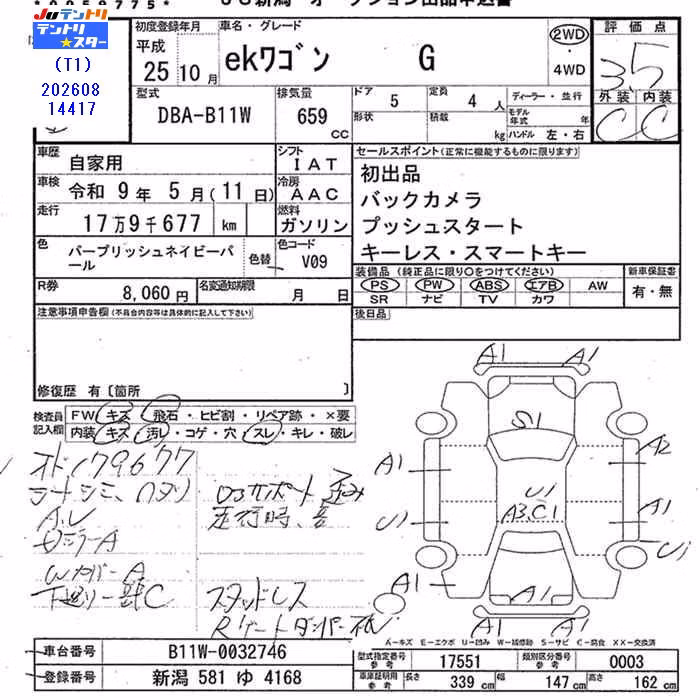 *0059775*
JU テントリ
テントリ★スター
(T1)
202608
14417
初度登録年月
平成
25 10月
車名・グレード
ekワゴン G
2WD
・
4WD
評価点
3.5
外装 内装
C C
型式
DBA-B11W
排気量
659 CC
ドア
5
定員
4 人
形状
積載
kg
ディーラー・並行
モデル年式 年
ハンドル 左・右
車歴
自家用
シフト
IAT
車検
令和 9年 5月(11日)
冷房
AAC
走行
17万9千677 km
燃料
ガソリン
セールスポイント(正常に機能するものに限ります)
初出品
バックカメラ
プッシュスタート
キーレス・スマートキー
色
パープリッシュネイビーパール
色替
色コード
V09
R券
8,060円
名変通知期限
月 日
装備品(純正品に限り○をつけてください)
PS PW ABS エアB AW
SR ナビ TV カワ
新車保証書
有・無
後日品
注意事項申告欄(不具合内容等は具体的に記入して下さい)
修復歴 有〔箇所 〕
検査員記入欄
FW キズ・飛石・ヒビ割・リペア跡・×要
内装 キズ・汚レ・コゲ・穴・スレ・キレ・破レ
オド179677
シートシミ、ハヌリ
A、U
WカバーA
下廻リ一部C
走行時、音
スタッドレス
A1 A1
S1
A1 A2
U1
A3.C1
U1 A1
U1
A1 A1 A1
A=キズ E=エクボ U=凹み W=補修跡 S=サビ C=腐食 XX=交換済
車台番号
B11W-0032746
登録番号
新潟 581 ゆ 4168
型式指定番号
参考
17551
類別区分番号
参考
0003
車庫証明用
参考
長さ
339 cm
幅
147 cm
高さ
162 cm